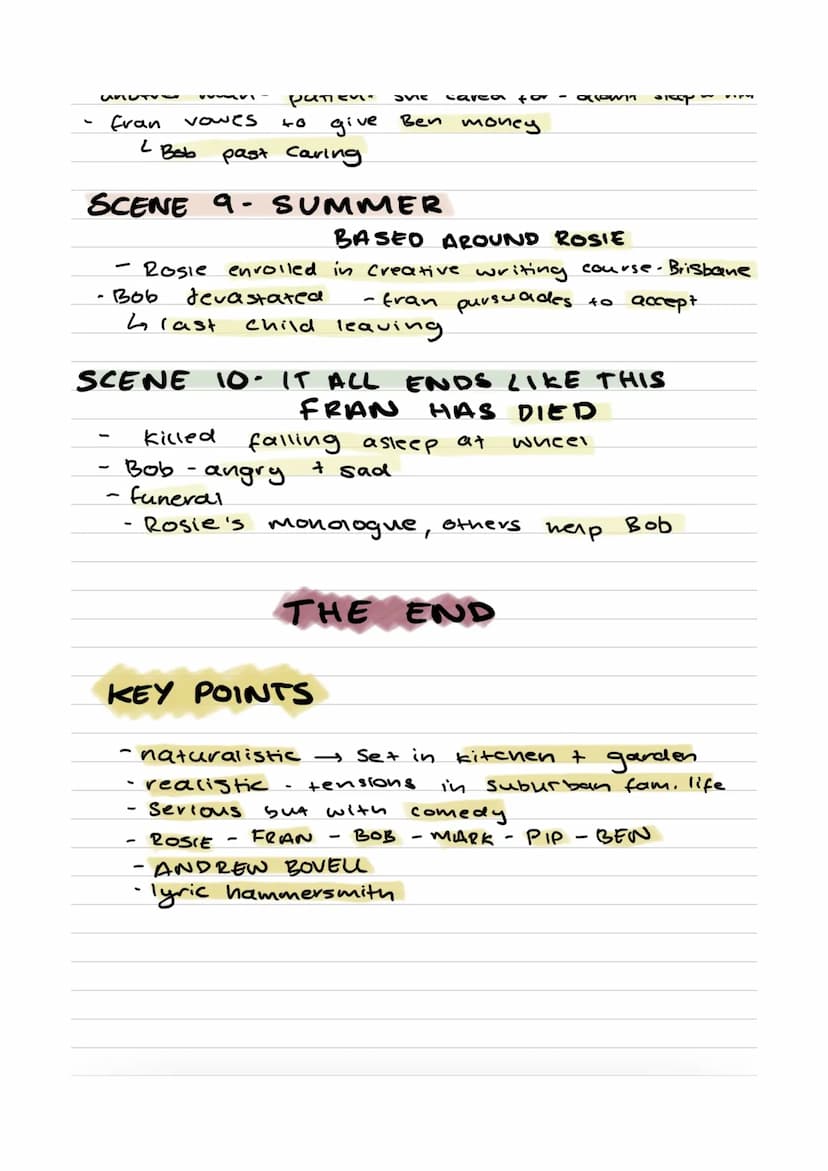 another man - patient she cared for - didn't sleep w him
- fran vowes to give Ben money
↳ Bob past caring
SCENE 9 - SUMMER
BASED AROUND ROSIE
- Rosie enrolled in creative writing course - Brisbane
- Bob devastated - fran pursuades to accept
↳ last child leaving
SCENE 10 - IT ALL ENDS LIKE THIS
FRAN HAS DIED
- killed falling asleep at wheel
- Bob - angry + sad
- funeral
- Rosie's monologue, others help Bob
THE END
KEY POINTS
- naturalistic → Set in kitchen + garden
- realistic - tensions in suburban fam. life
- Serious but with comedy
- ROSIE - FRAN - BOB - MARK - PIP - BEN
- ANDREW BOVELL
- lyric hammersmith